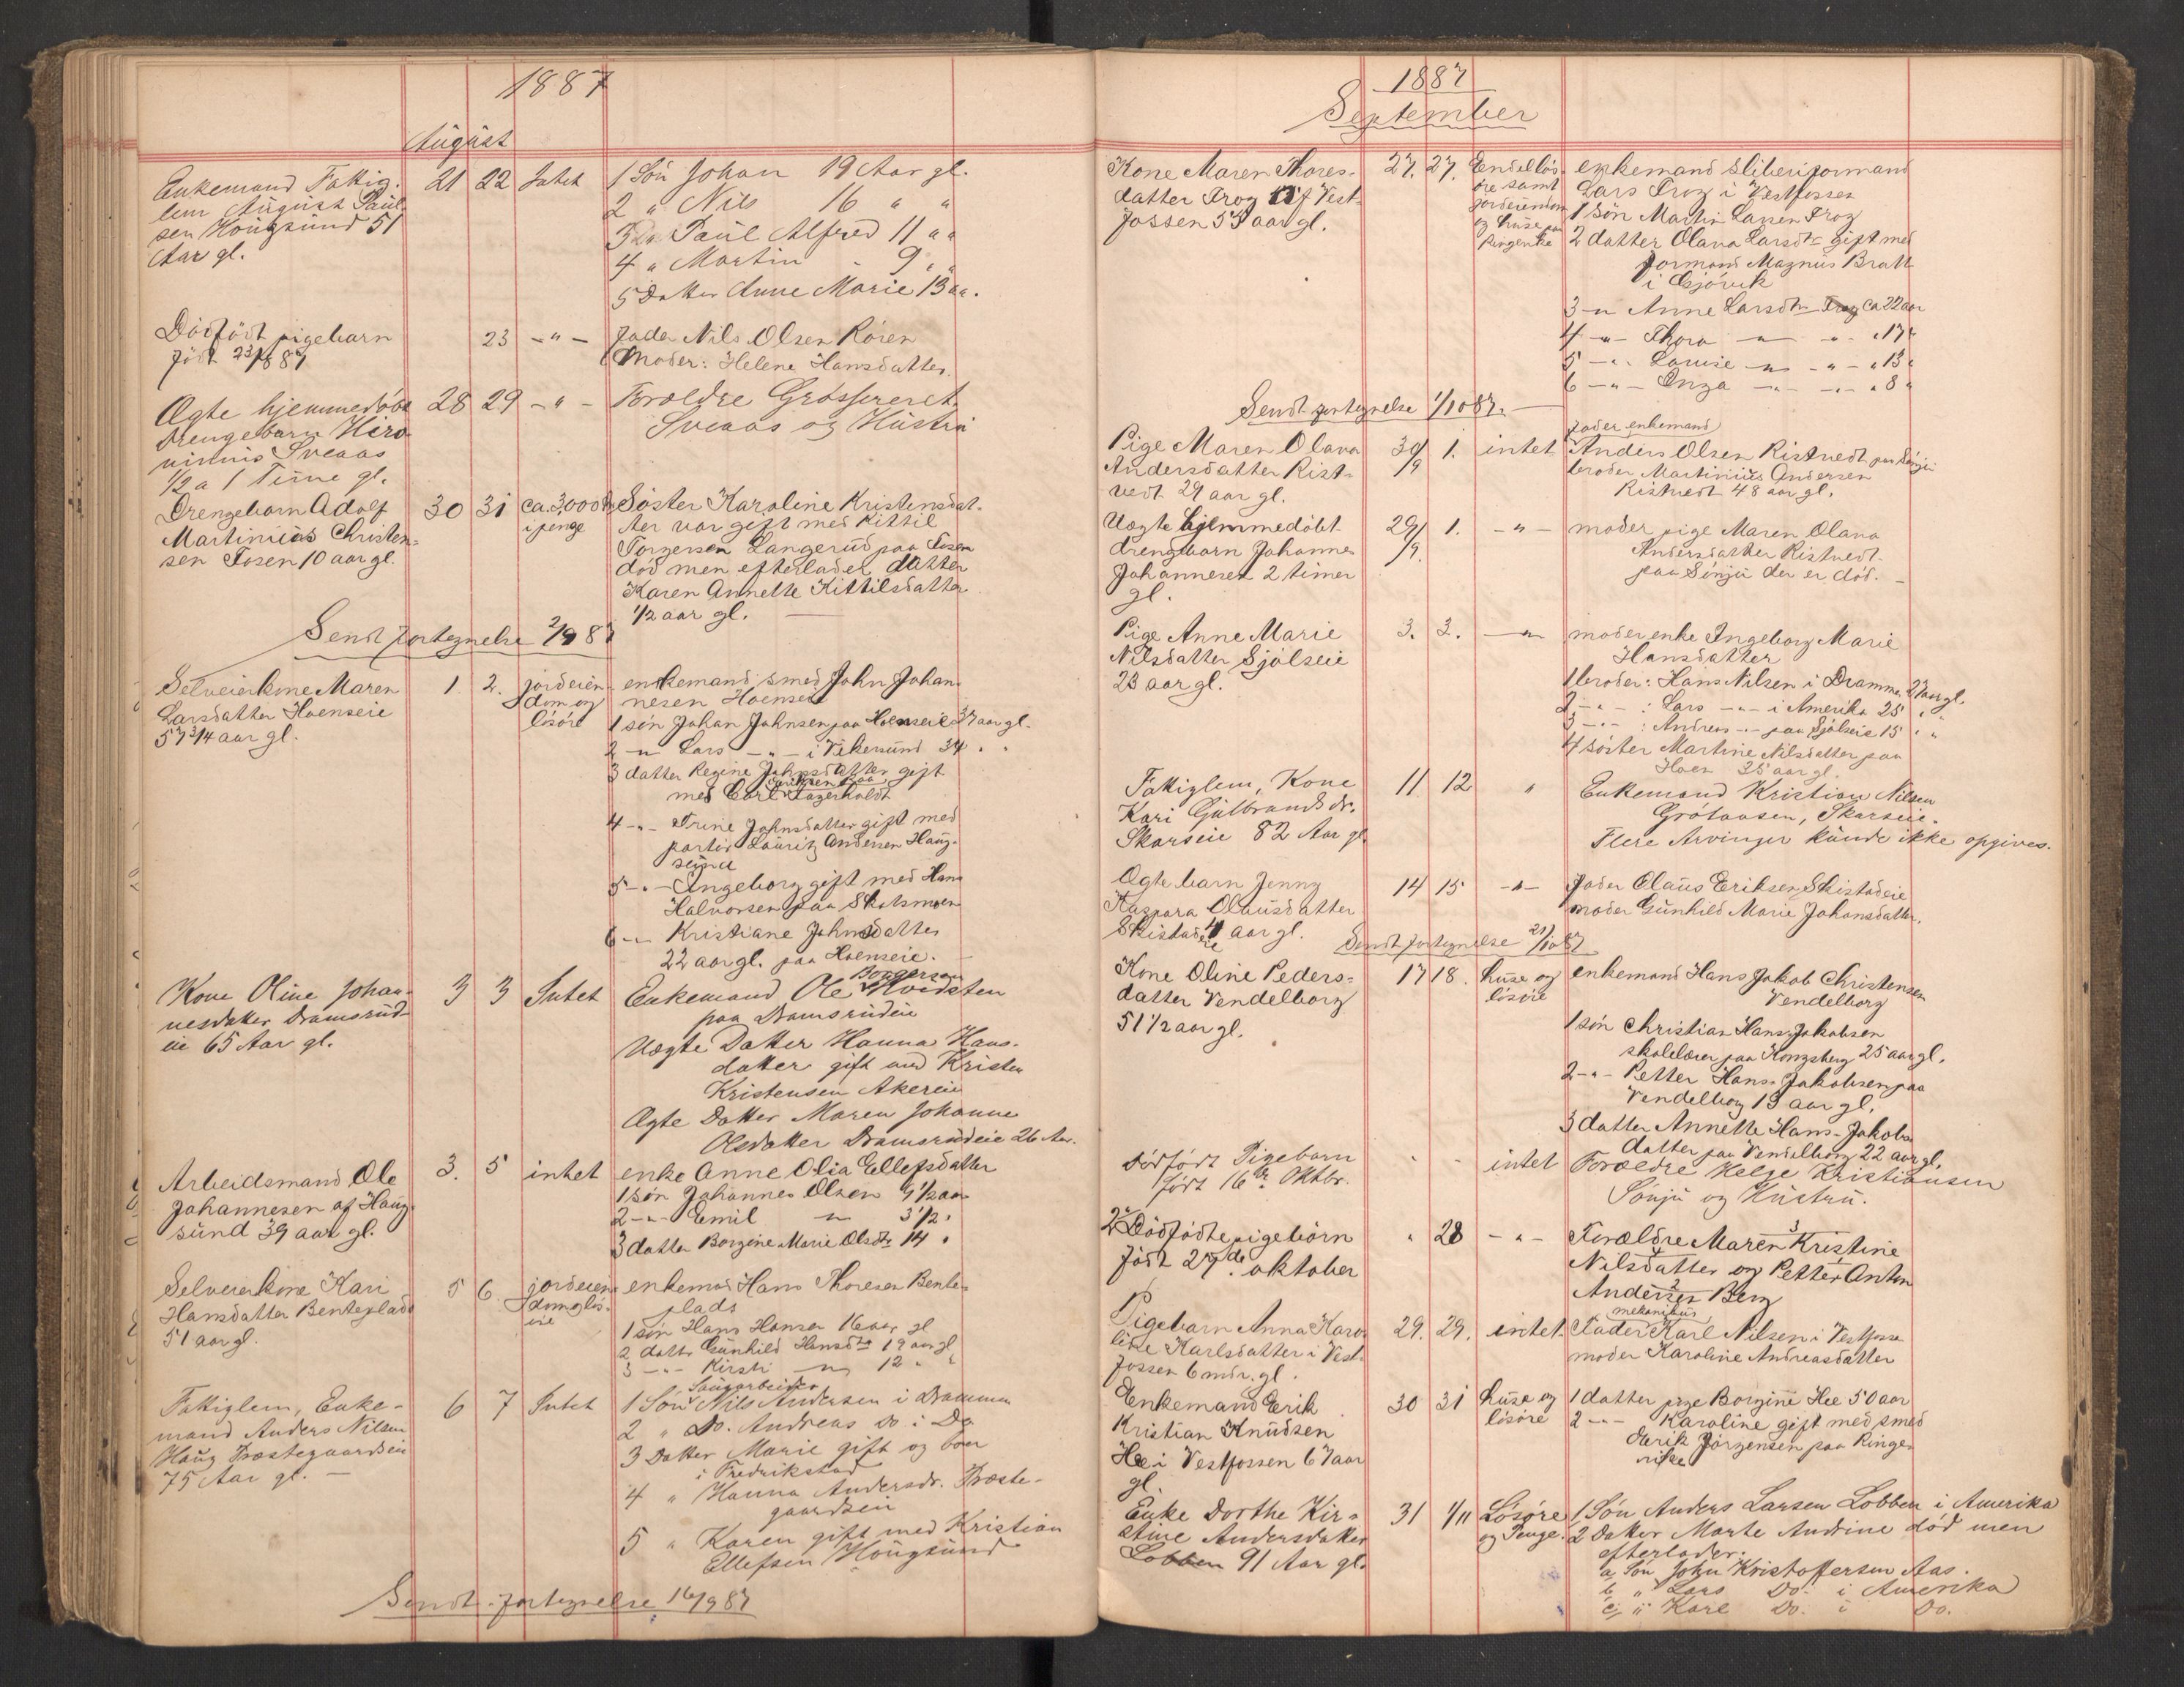 1887
August
Enkemand Fattig-
lem August Paul-
sen Hougsund 51
Aar gl.
21 22 Intet
1 Søn Johan 19 Aar gl.
2 " Nils 16 " "
3 Do. Paul Alfred 11 " "
4 " Martin - 9 " "
5 Datter Anne Marie 13 " ".
Dödfödt pigebarn
födt 23/8 87
23 - " -
fader Nils Olsen Rören
Moder: Helene Hansdatter.
Ægte hjemmedöbt
drengebarn
Sveaas
1/2 a 1 Time gl.
28 29 - " -
Forældre Grosserer
Sveaas og Hustru
Drengebarn Adolf
Martinius Christen-
sen Fosen 10 aar gl.
30 31 ca. 3,000 Kr
i penge
Söster Karoline Kristensdat-
ter var gift med Kittil
Torgersen Langerud paa Fosen
död men efterlader datter
Karen Annette Kittilsdatter
1/2 aar gl.
Sendt fortegnelse 2/9 87
Selveierkone Maren
Larsdatter Hoenseie
57 3/4 aar gl.
1. 2. jordeien-
dom og
lösöre
enkemand smed John Johan-
nesen Hoenseie
1 sön Johan Johnsen paa Hoenseie 37 aar gl.
2 - " - Lars - " - i Vikersund 34 " "
3 datter Regine Johnsdatter gift
med Carl Eriksen paa Lagerholdt
4 - " - Trine Johnsdatter gift med
portör Lauritz Andersen Haug-
sund
5 - " - Ingeborg gift med Hans
Halvorsen paa Skotsmoen
6 - " - Kristiane Johnsdatter
22 aar gl. paa Hoenseie.
Kone Oline Johan-
nesdatter Dramsrud-
eie 65 Aar gl.
3 3 Intet
Enkemand Ole Borgersen Hvidsten
paa Dramsrudeie
Uægte Datter Hanna Hans-
datter gift med Kristen
Kristensen Akereie
Ægte Datter Maren Johanne
Olesdatter Dramsrudeie 26 Aar.
Arbeidsmand Ole
Johannesen af Haug-
sund 39 aar gl.
3. 5 intet
enke Anne Olia Ellefsdatter
1 sön Johannes Olsen 9 1/2 aar
2 - " - Emil - " - 3 1/2 "
3 datter Borgine Marie Olsdtr 14 "
Selveierkone Kari
Hansdatter Benteplads
51 aar gl.
5 6. jordeien-
dom og lös-
öre
enkemand Hans Thoresen Bente-
plads
1 sön Hans Hansen 16 aar gl
2 datter Gunhild Hansdtr 19 aar gl
3 - " - Kirsti - " - 12 " "
Fattiglem, Enke-
mand Anders Nilsen
Haug Præstegaardseie
75 Aar gl. -
6 7 Intet
Saugarbeider
1 Søn Nils Andersen i Drammen
2 " Do. Andreas Do. i Do
3 Datter Marie gift og boer
i Fredrikstad
4 " Hanna Andersdr. Præste-
gaardseie
5 " Karen gift med Kristian
Ellefsen Hougsund
Sendt fortegnelse 16/9 87
1887
September
Kone Maren Thores-
datter Frog af Vest-
fossen 53 aar gl.
27. 27. Endel lös-
öre samt
jordeiendom
og huse paa
Ringerike
enkemand sliberiformand
Lars Frog i Vestfossen
1 sön Martin Larsen Frog
2 datter Olava Larsdtr gift med
formand Magnus Bratt
i Gjövik
3 - " Anne Larsdtr Frog ca 22 aar
4 - " - Thora - " - " - " 17 "
5 - " - Louise - " - " - " 13 "
6 - " - Inga - " - " - " 8 "
Sendt fortegnelse 1/10 87.
Pige Maren Olava
Andersdatter Rist-
vedt 29 aar gl.
30/9 1. intet
fader enkemand
Anders Olsen Ristvedt paa Sönju
broder Martinius Andersen
Ristvedt 48 aar gl.
Uægte hjemmedöbt
drengebarn Johannes
Johannesen 2 timer
gl.
29/9. 1. - " -
moder pige Maren Olava
Andersdatter Ristvedt
paa Sönju der er död. -
Pige Anne Marie
Nilsdatter Sjölseie
23 aar gl.
3. 3. - " -
moder enke Ingeborg Marie
Hansdatter
1 broder: Hans Nilsen i Drammen 27 aar gl.
2 - " - : Lars - " - i Amerika 25 " "
3 - " - : Andreas - " - paa Sjölseie 15 " "
4 söster Martine Nilsdatter paa
Hoen 35 aar gl.
Fattiglem, Kone
Kari Gulbrandsdr.
Skarseie 82 Aar gl.
11 12 "
Enkemand Kristian Nilsen
Grötaasen, Skarseie.
Flere Arvinger kunde ikke opgives.
Ægte barn Jenny
Kaspara Olausdatter
Skistadeie 4 aar gl.
14 15 - " -
fader Olaus Eriksen Skistadeie
moder Gunhild Marie Johansdatter.
Sendt fortegnelse 21/10 87
Kone Oline Peders-
datter Vendelborg
51 1/2 aar gl.
17 18. huse og
lösöre
enkemand Hans Jakob Christensen
Vendelborg
1 sön Christian Hans-Jakobsen
skolelærer paa Kongsberg 25 aar gl.
2 - " - Petter Hans-Jakobsen paa
Vendelborg 13 aar gl.
3 datter Annette Hans-Jakobs-
datter paa Vendelborg 22 aar gl.
Dödfödt Pigebarn
født 16de Oktbr.
" - intet
Forældre Helge Kristiansen
Sönju og Hustru.
2 Dödfödte pigebörn
födt 27de oktober
" 28 - " -
Forældre Maren Kristine
Nilsdatter og Petter Anton
Andersen Berg
Pigebarn Anna Karo-
line Karlsdatter i Vest-
fossen 6 mdr. gl.
29. 29. intet
mekanikus
Fader Karl Nilsen i Vestfossen
moder Karoline Andreasdatter
Enkemand Erik
Kristian Knudsen
Hee i Vestfossen 67 aar
gl.
30 31 huse og
lösöre
1 datter pige Borgine Hee 50 aar
2 - " - Karoline gift med smed
Jörgensen paa Ringe-
rike
Enke Dorthe Kir-
stine Andersdatter
Lobben 91 Aar gl.
31 1/11 Lösöre
og Penge.
1 Søn Anders Larsen Lobben i Amerika
2 Datter Marte Andrine død men
efterlader:
a, Søn John Kristoffersen Aas.
b, " Lars Do. i Amerika
c, " Karl Do. i Do.